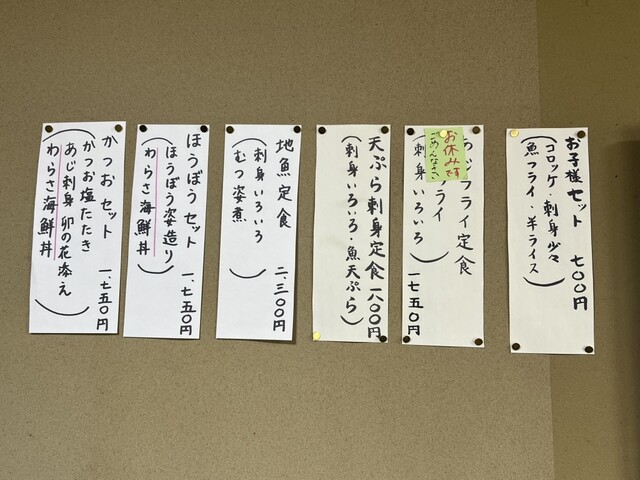 お子様セット 七〇〇円
(コロッケ・刺身少々
魚フライ・半ライス)
お休みです
ごめんなさい
フライ定食
フライ
(刺身いろいろ) 一七五〇円
天ぷら刺身定食 一八〇〇円
(刺身いろいろ・魚天ぷら)
地魚定食 二、三〇〇円
(刺身いろいろ
むつ姿煮)
ほうぼうセット 一、七五〇円
(ほうぼう姿造り
わらさ海鮮丼)
かつおセット 一、七五〇円
(かつお塩たたき
あじ刺身 卯の花添え
わらさ海鮮丼)